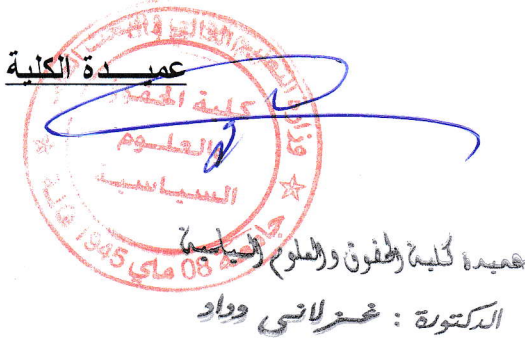 عميـــدة الكلية
وزارة التعليم العالي و البحث
كلية الحقوق
والعلوم
السياسية
جامعة 08 ماي 1945 قالمة
عميدة كلية الحقوق والعلوم السياسية
الدكتورة : غـزلانـي وداد